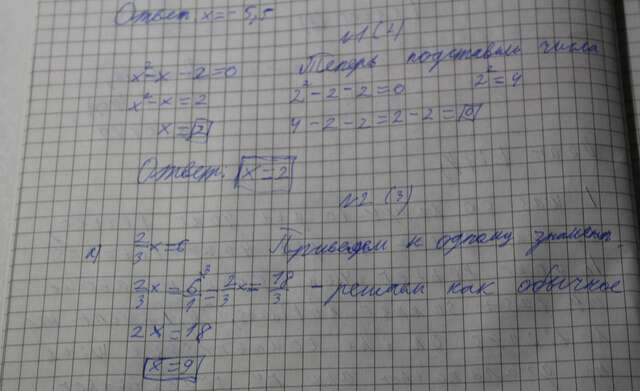 Ответ x = -5,5
№1 (2)
x² - x - 2 = 0 Теперь подставим числа
x² - x = 2 2² - 2 - 2 = 0 2² = 4
x = 2 4 - 2 - 2 = 2 - 2 = 0
Ответ: x = 2
№2 (3)
2/3 x = 6 Приведём к одному знамен.
2/3 x = 6³/1 = 2/3 x = 18/3 - решаем как обычное
2x = 18
x = 9